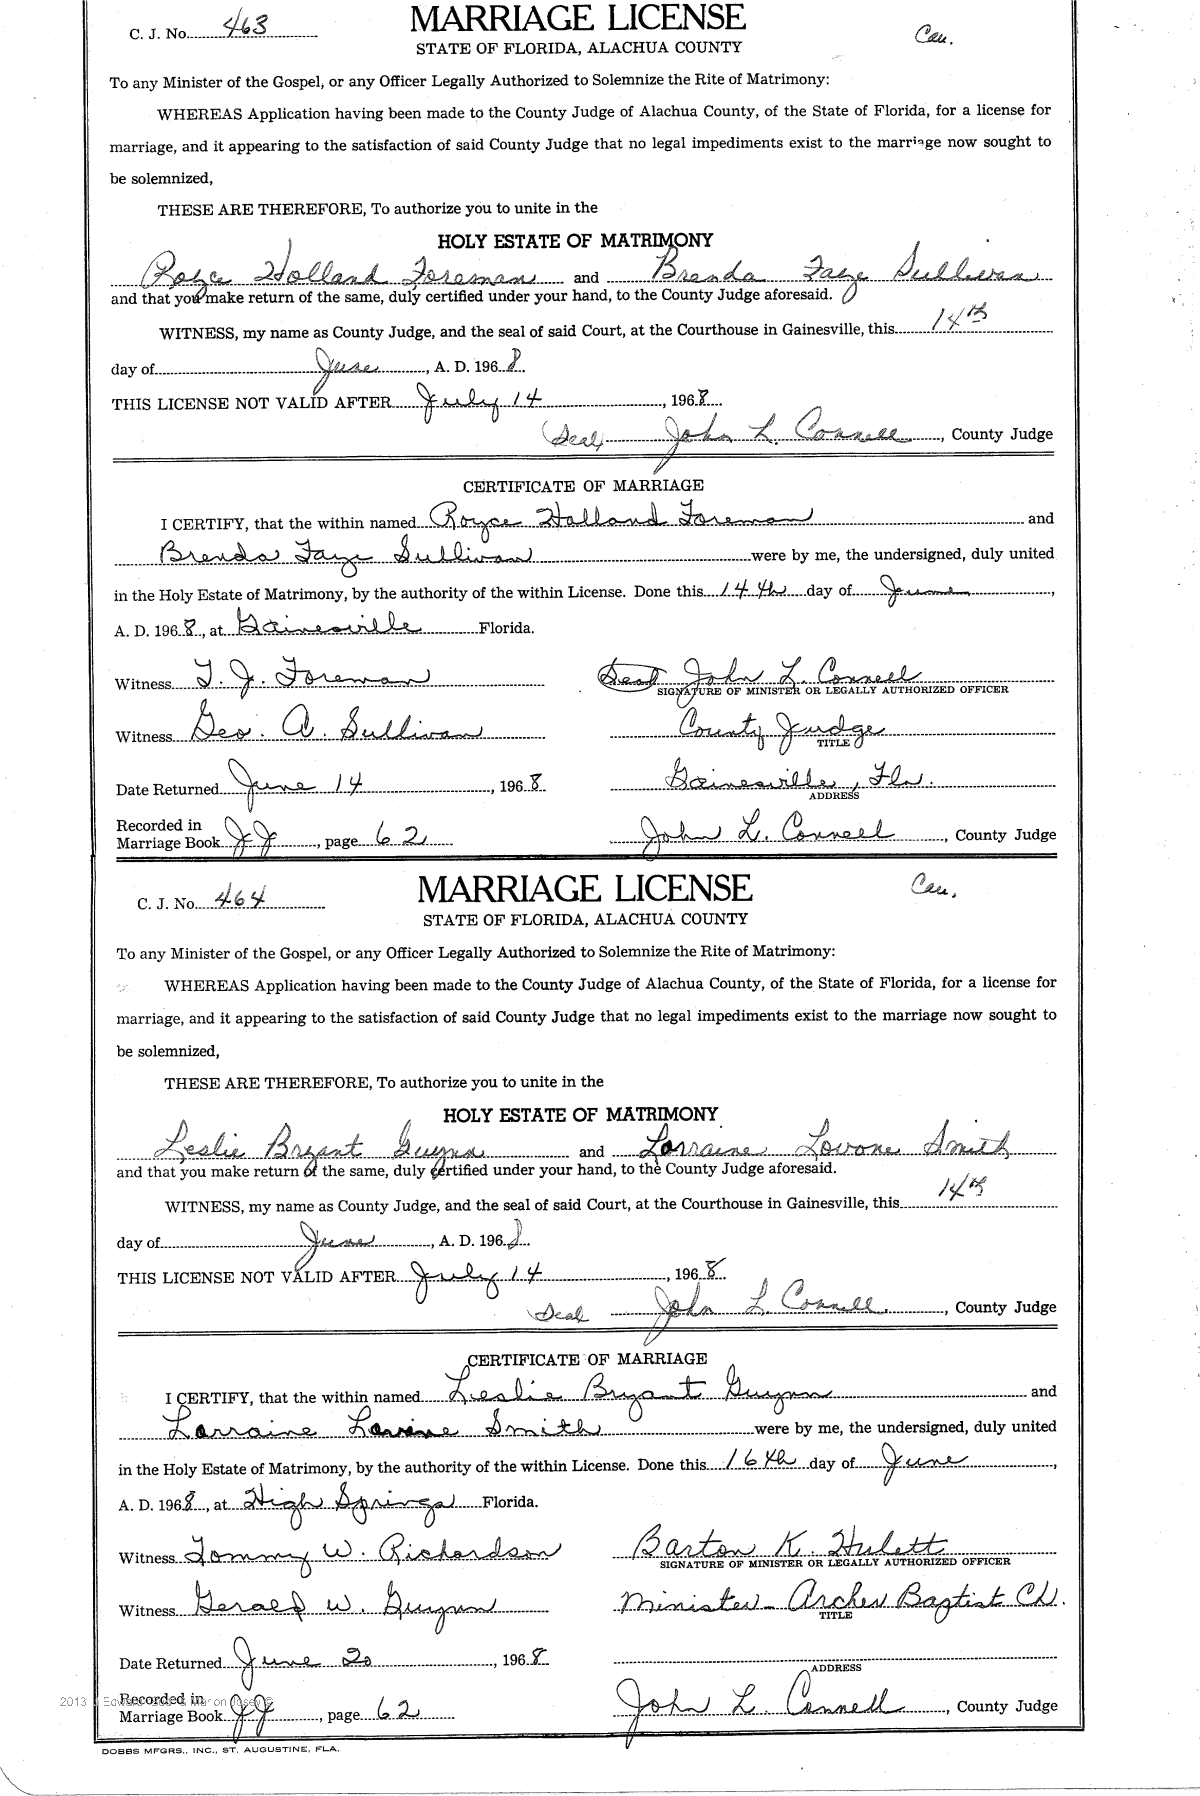 C. J. No. 463
MARRIAGE LICENSE
Cau.
STATE OF FLORIDA, ALACHUA COUNTY
To any Minister of the Gospel, or any Officer Legally Authorized to Solemnize the Rite of Matrimony:
WHEREAS Application having been made to the County Judge of Alachua County, of the State of Florida, for a license for
marriage, and it appearing to the satisfaction of said County Judge that no legal impediments exist to the marriage now sought to
be solemnized,
THESE ARE THEREFORE, To authorize you to unite in the
HOLY ESTATE OF MATRIMONY
Royce Holland Foreman and Brenda Faye Sullivan
and that you make return of the same, duly certified under your hand, to the County Judge aforesaid.
WITNESS, my name as County Judge, and the seal of said Court, at the Courthouse in Gainesville, this 14th
day of June, A. D. 1968.
THIS LICENSE NOT VALID AFTER July 14, 1968.
(Seal) John L. Connell, County Judge
CERTIFICATE OF MARRIAGE
I CERTIFY, that the within named Royce Holland Foreman and
Brenda Faye Sullivan were by me, the undersigned, duly united
in the Holy Estate of Matrimony, by the authority of the within License. Done this 14th day of June,
A. D. 1968, at Gainesville Florida.
Witness T. J. Foreman Seal John L. Connell
SIGNATURE OF MINISTER OR LEGALLY AUTHORIZED OFFICER
Witness Geo. A. Sullivan County Judge
TITLE
Date Returned June 14, 1968 Gainesville, Fla.
ADDRESS
Recorded in
Marriage Book JJ, page 62 John L. Connell, County Judge
C. J. No. 464
MARRIAGE LICENSE
Cau.
STATE OF FLORIDA, ALACHUA COUNTY
To any Minister of the Gospel, or any Officer Legally Authorized to Solemnize the Rite of Matrimony:
WHEREAS Application having been made to the County Judge of Alachua County, of the State of Florida, for a license for
marriage, and it appearing to the satisfaction of said County Judge that no legal impediments exist to the marriage now sought to
be solemnized,
THESE ARE THEREFORE, To authorize you to unite in the
HOLY ESTATE OF MATRIMONY
Leslie Bryant Guynn and Lorraine Lovone Smith
and that you make return of the same, duly certified under your hand, to the County Judge aforesaid.
WITNESS, my name as County Judge, and the seal of said Court, at the Courthouse in Gainesville, this 14th
day of June, A. D. 1968.
THIS LICENSE NOT VALID AFTER July 14, 1968.
Seal John L. Connell, County Judge
CERTIFICATE OF MARRIAGE
I CERTIFY, that the within named Leslie Bryant Guynn and
Lorraine Smith were by me, the undersigned, duly united
in the Holy Estate of Matrimony, by the authority of the within License. Done this 16th day of June,
A. D. 1968, at High Springs Florida.
Witness Tommy W. Richardson Barton K. Hulett
SIGNATURE OF MINISTER OR LEGALLY AUTHORIZED OFFICER
Witness Gerald W. Guynn Minister - Archer Baptist Ch.
TITLE
Date Returned June 20, 1968
ADDRESS
Recorded in
Marriage Book JJ, page 62 John L. Connell, County Judge
2013
DOBBS MFGRS., INC., ST. AUGUSTINE, FLA.